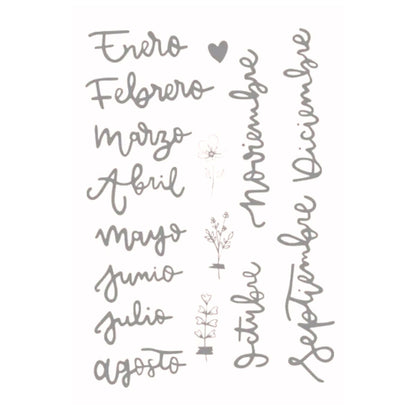 Enero
Febrero
Marzo
Abril
mayo
junio
julio
agosto
Septiembre
Octubre
Noviembre
Diciembre